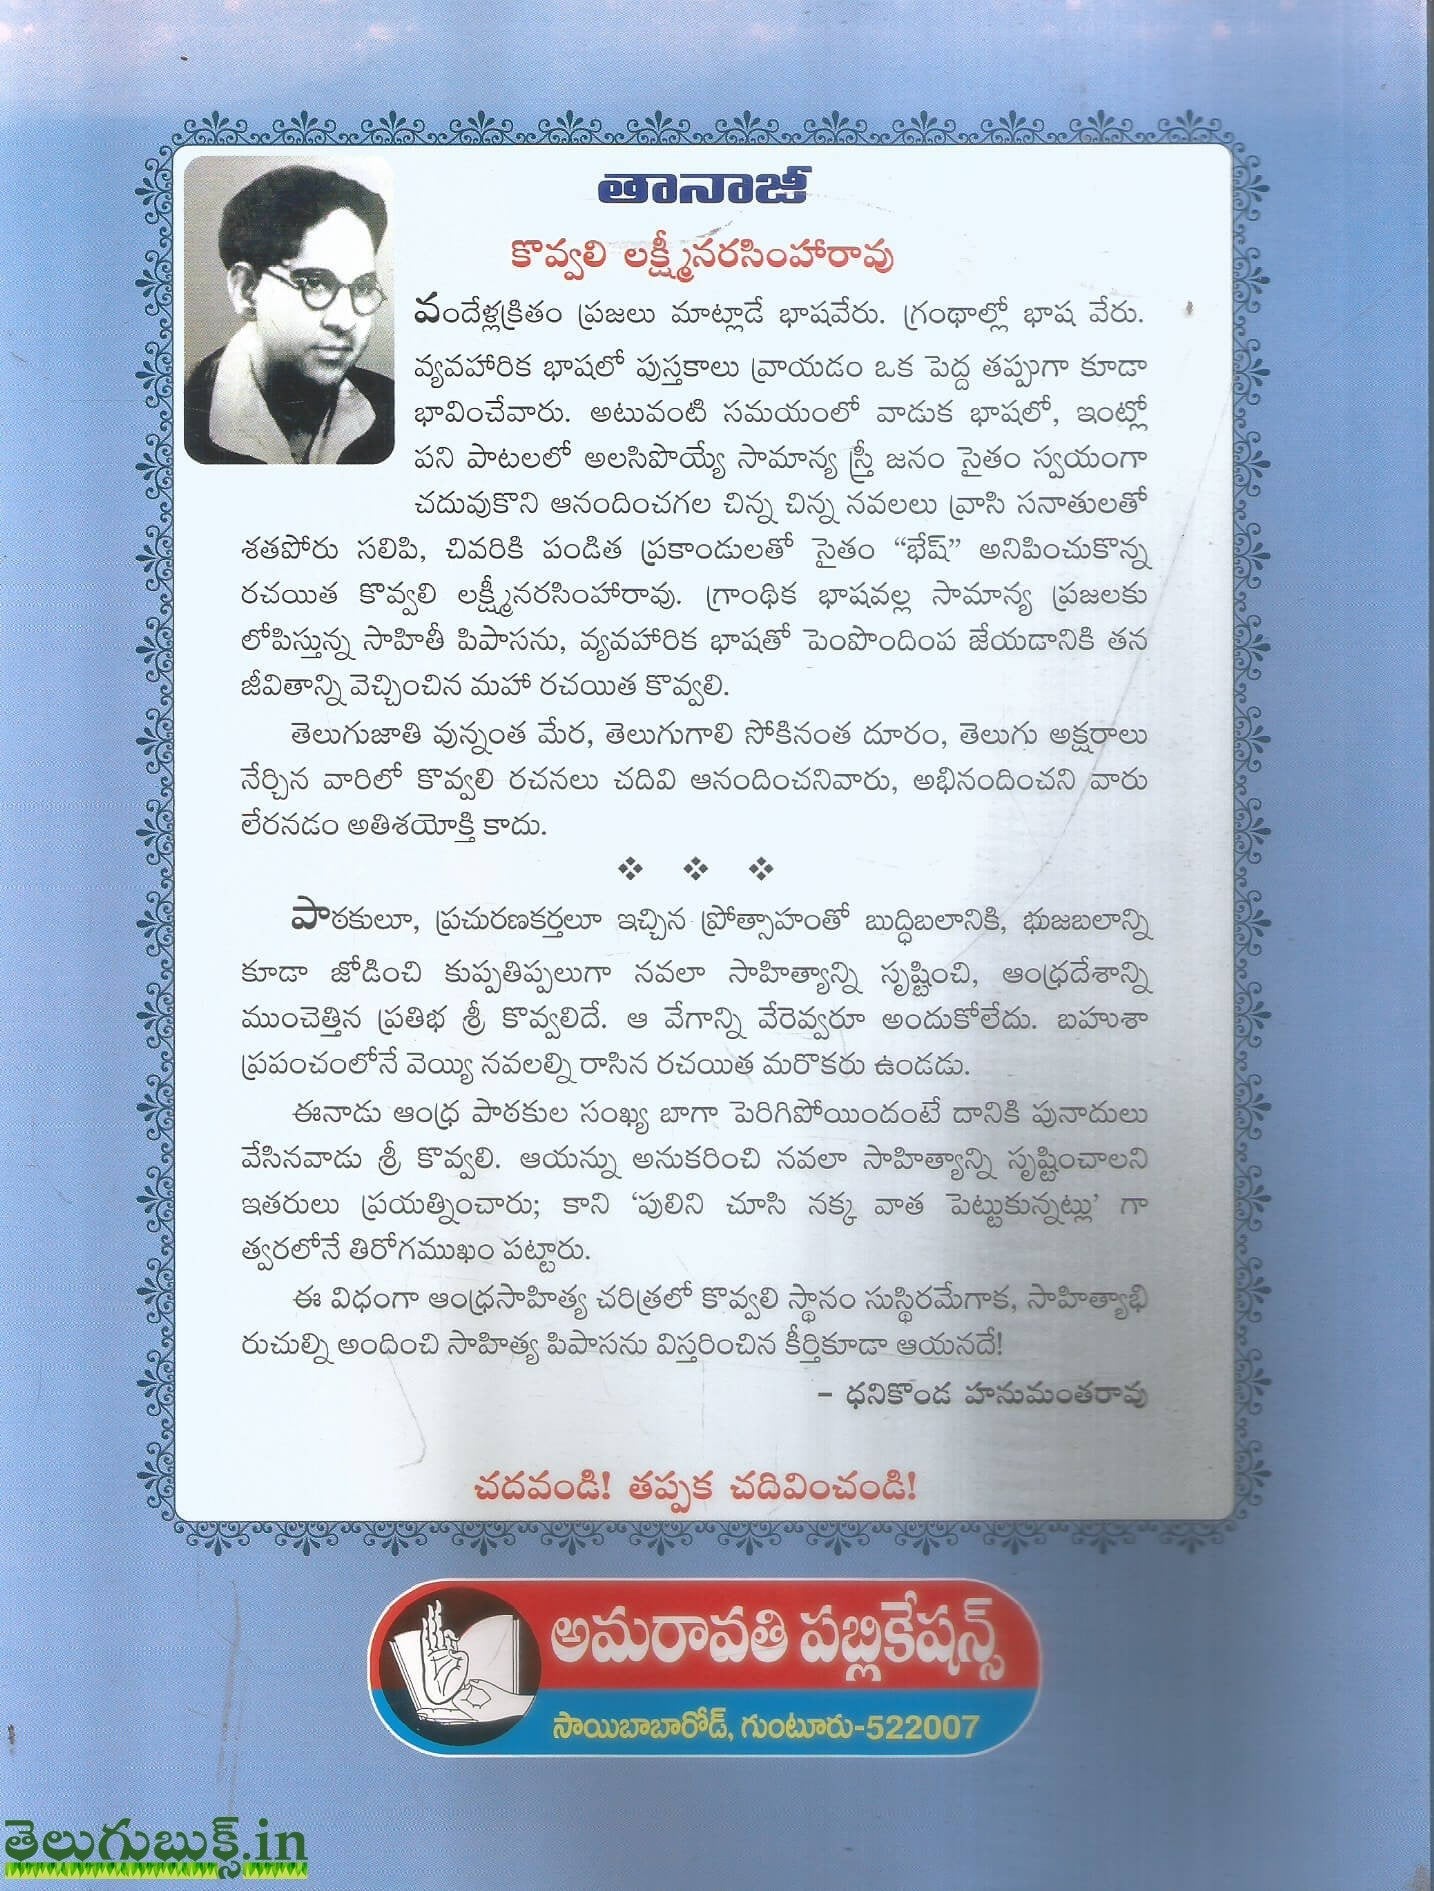 తానాజీ
కొవ్వలి లక్ష్మీనరసింహారావు
వందేళ్లక్రితం ప్రజలు మాట్లాడే భాషవేరు. గ్రంథాల్లో భాష వేరు.
వ్యవహారిక భాషలో పుస్తకాలు వ్రాయడం ఒక పెద్ద తప్పుగా కూడా
భావించేవారు. అటువంటి సమయంలో వాడుక భాషలో, ఇంట్లో
పని పాటలలో అలసిపొయ్యే సామాన్య స్త్రీ జనం సైతం స్వయంగా
చదువుకొని ఆనందించగల చిన్న చిన్న నవలలు వ్రాసి సనాతులతో
శతపోరు సలిపి, చివరికి పండిత ప్రకాండులతో సైతం “భేష్” అనిపించుకొన్న
రచయిత కొవ్వలి లక్ష్మీనరసింహారావు. గ్రాంథిక భాషవల్ల సామాన్య ప్రజలకు
లోపిస్తున్న సాహితీ పిపాసను, వ్యవహారిక భాషతో పెంపొందింప జేయడానికి తన
జీవితాన్ని వెచ్చించిన మహా రచయిత కొవ్వలి.
తెలుగుజాతి వున్నంత మేర, తెలుగుగాలి సోకినంత దూరం, తెలుగు అక్షరాలు
నేర్చిన వారిలో కొవ్వలి రచనలు చదివి ఆనందించనివారు, అభినందించని వారు
లేరనడం అతిశయోక్తి కాదు.
పాఠకులూ, ప్రచురణకర్తలూ ఇచ్చిన ప్రోత్సాహంతో బుద్ధిబలానికి, భుజబలాన్ని
కూడా జోడించి కుప్పతిప్పలుగా నవలా సాహిత్యాన్ని సృష్టించి, ఆంధ్రదేశాన్ని
ముంచెత్తిన ప్రతిభ శ్రీ కొవ్వలిదే. ఆ వేగాన్ని వేరెవ్వరూ అందుకోలేదు. బహుశా
ప్రపంచంలోనే వెయ్యి నవలల్ని రాసిన రచయిత మరొకరు ఉండడు.
ఈనాడు ఆంధ్ర పాఠకుల సంఖ్య బాగా పెరిగిపోయిందంటే దానికి పునాదులు
వేసినవాడు శ్రీ కొవ్వలి. ఆయన్ను అనుకరించి నవలా సాహిత్యాన్ని సృష్టించాలని
ఇతరులు ప్రయత్నించారు; కాని ‘పులిని చూసి నక్క వాత పెట్టుకున్నట్లు’ గా
త్వరలోనే తిరోగముఖం పట్టారు.
ఈ విధంగా ఆంధ్రసాహిత్య చరిత్రలో కొవ్వలి స్థానం సుస్థిరమేగాక, సాహిత్యాభి
రుచుల్ని అందించి సాహిత్య పిపాసను విస్తరించిన కీర్తికూడా ఆయనదే!
– ధనికొండ హనుమంతరావు
చదవండి! తప్పక చదివించండి!
అమరావతి పబ్లికేషన్స్
సాయిబాబారోడ్, గుంటూరు-522007
తెలుగుబుక్స్.in